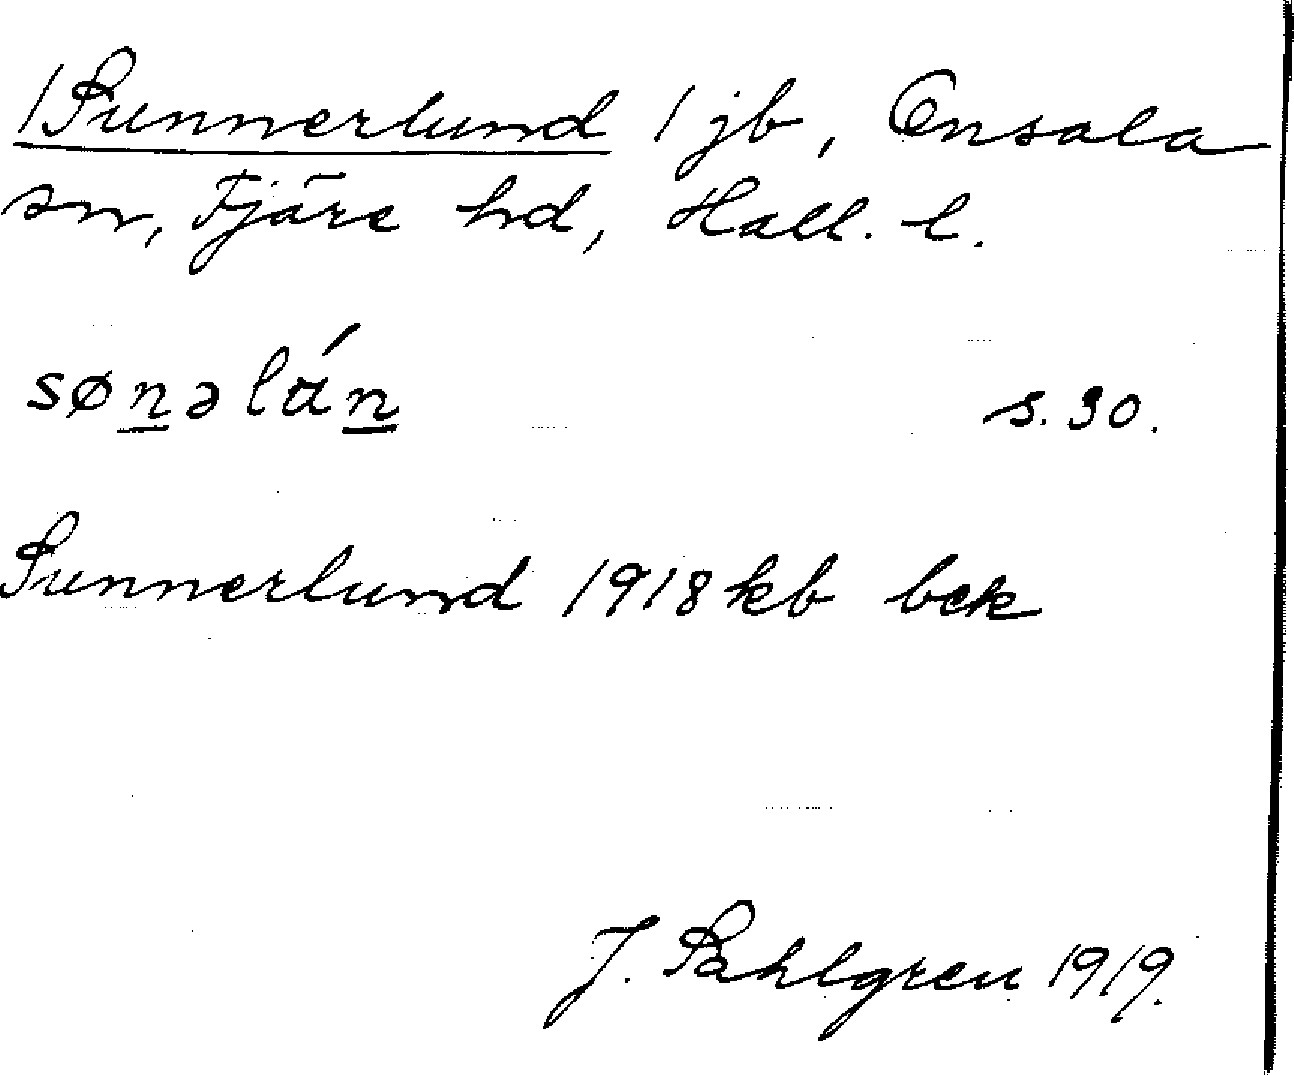 /Sunnerlund / jb, Onsala
sn, Fjäre hd, Hall. l.
sønəlán s. 30.
Sunnerlund 1918 kb bek
J. Sahlgren 1919.